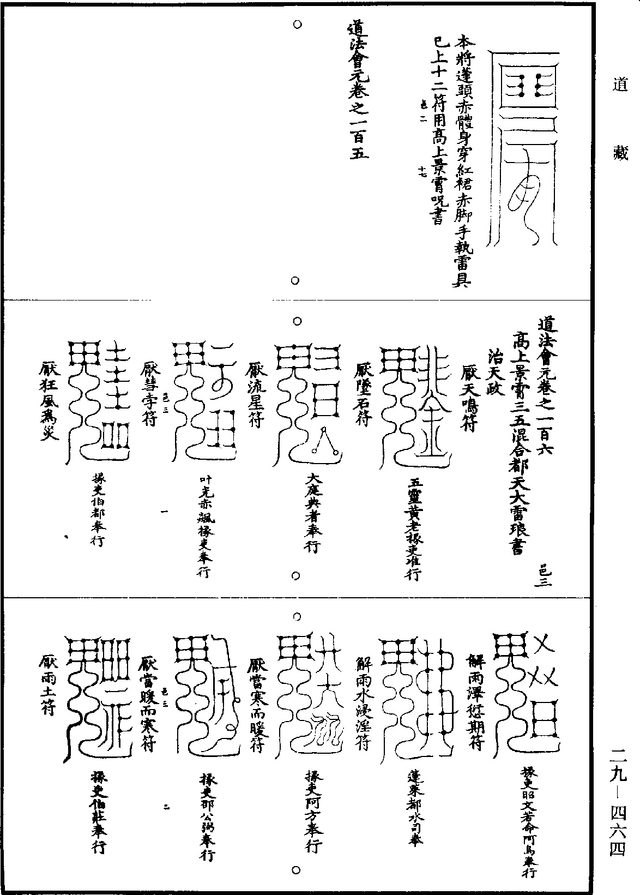 道藏
本將蓬頭赤體身穿紅裙赤脚手執雷具
已上十二符用高上景霄呪書
邑二
十七
道法會元卷之一百五
道法會元卷之一百六
邑三
高上景霄三五混合都天大雷琅書
治天政
厭天鳴符
五靈黃老掾吏堆行
厭墜石符
大庭典者奉行
厭流星符
叶光赤飊掾吏奉行
厭彗孛符
邑三
一
掾吏伯都奉行
厭狂風爲災
解雨澤愆期符
掾吏昭文若命阿烏奉行
蓬萊都水司奉
解雨水浸淫符
掾吏阿方奉行
厭當寒而暖符
掾吏邵公弼奉行
厭當暖而寒符
邑三
二
掾吏伯莊奉行
厭雨土符
二九—四六四